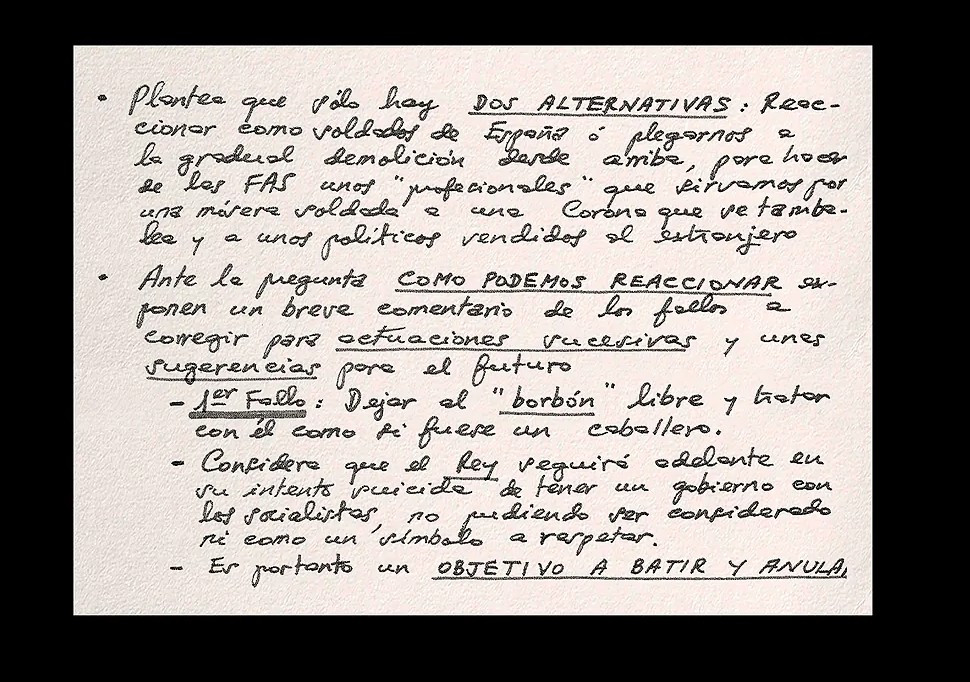 • Plantea que sólo hay DOS ALTERNATIVAS: Reac-
cionar como soldados de España ó plegarnos a
la gradual demolición desde arriba, para hacer
de las FAS unos "profesionales" que sirvamos por
una mísera soldada a una Corona que se tamba-
lea y a unos políticos vendidos al extranjero
• Ante la pregunta COMO PODEMOS REACCIONAR ex-
ponen un breve comentario de los fallos a
corregir para actuaciones sucesivas y unas
sugerencias para el futuro
- 1er Fallo: Dejar al "borbón" libre y tratar
con él como si fuese un caballero.
- Considera que el Rey seguirá adelante en
su intento suicida de tener un gobierno con
los socialistas, no pudiendo ser considerado
ni como un símbolo a respetar.
- Es portanto un OBJETIVO A BATIR Y ANULA